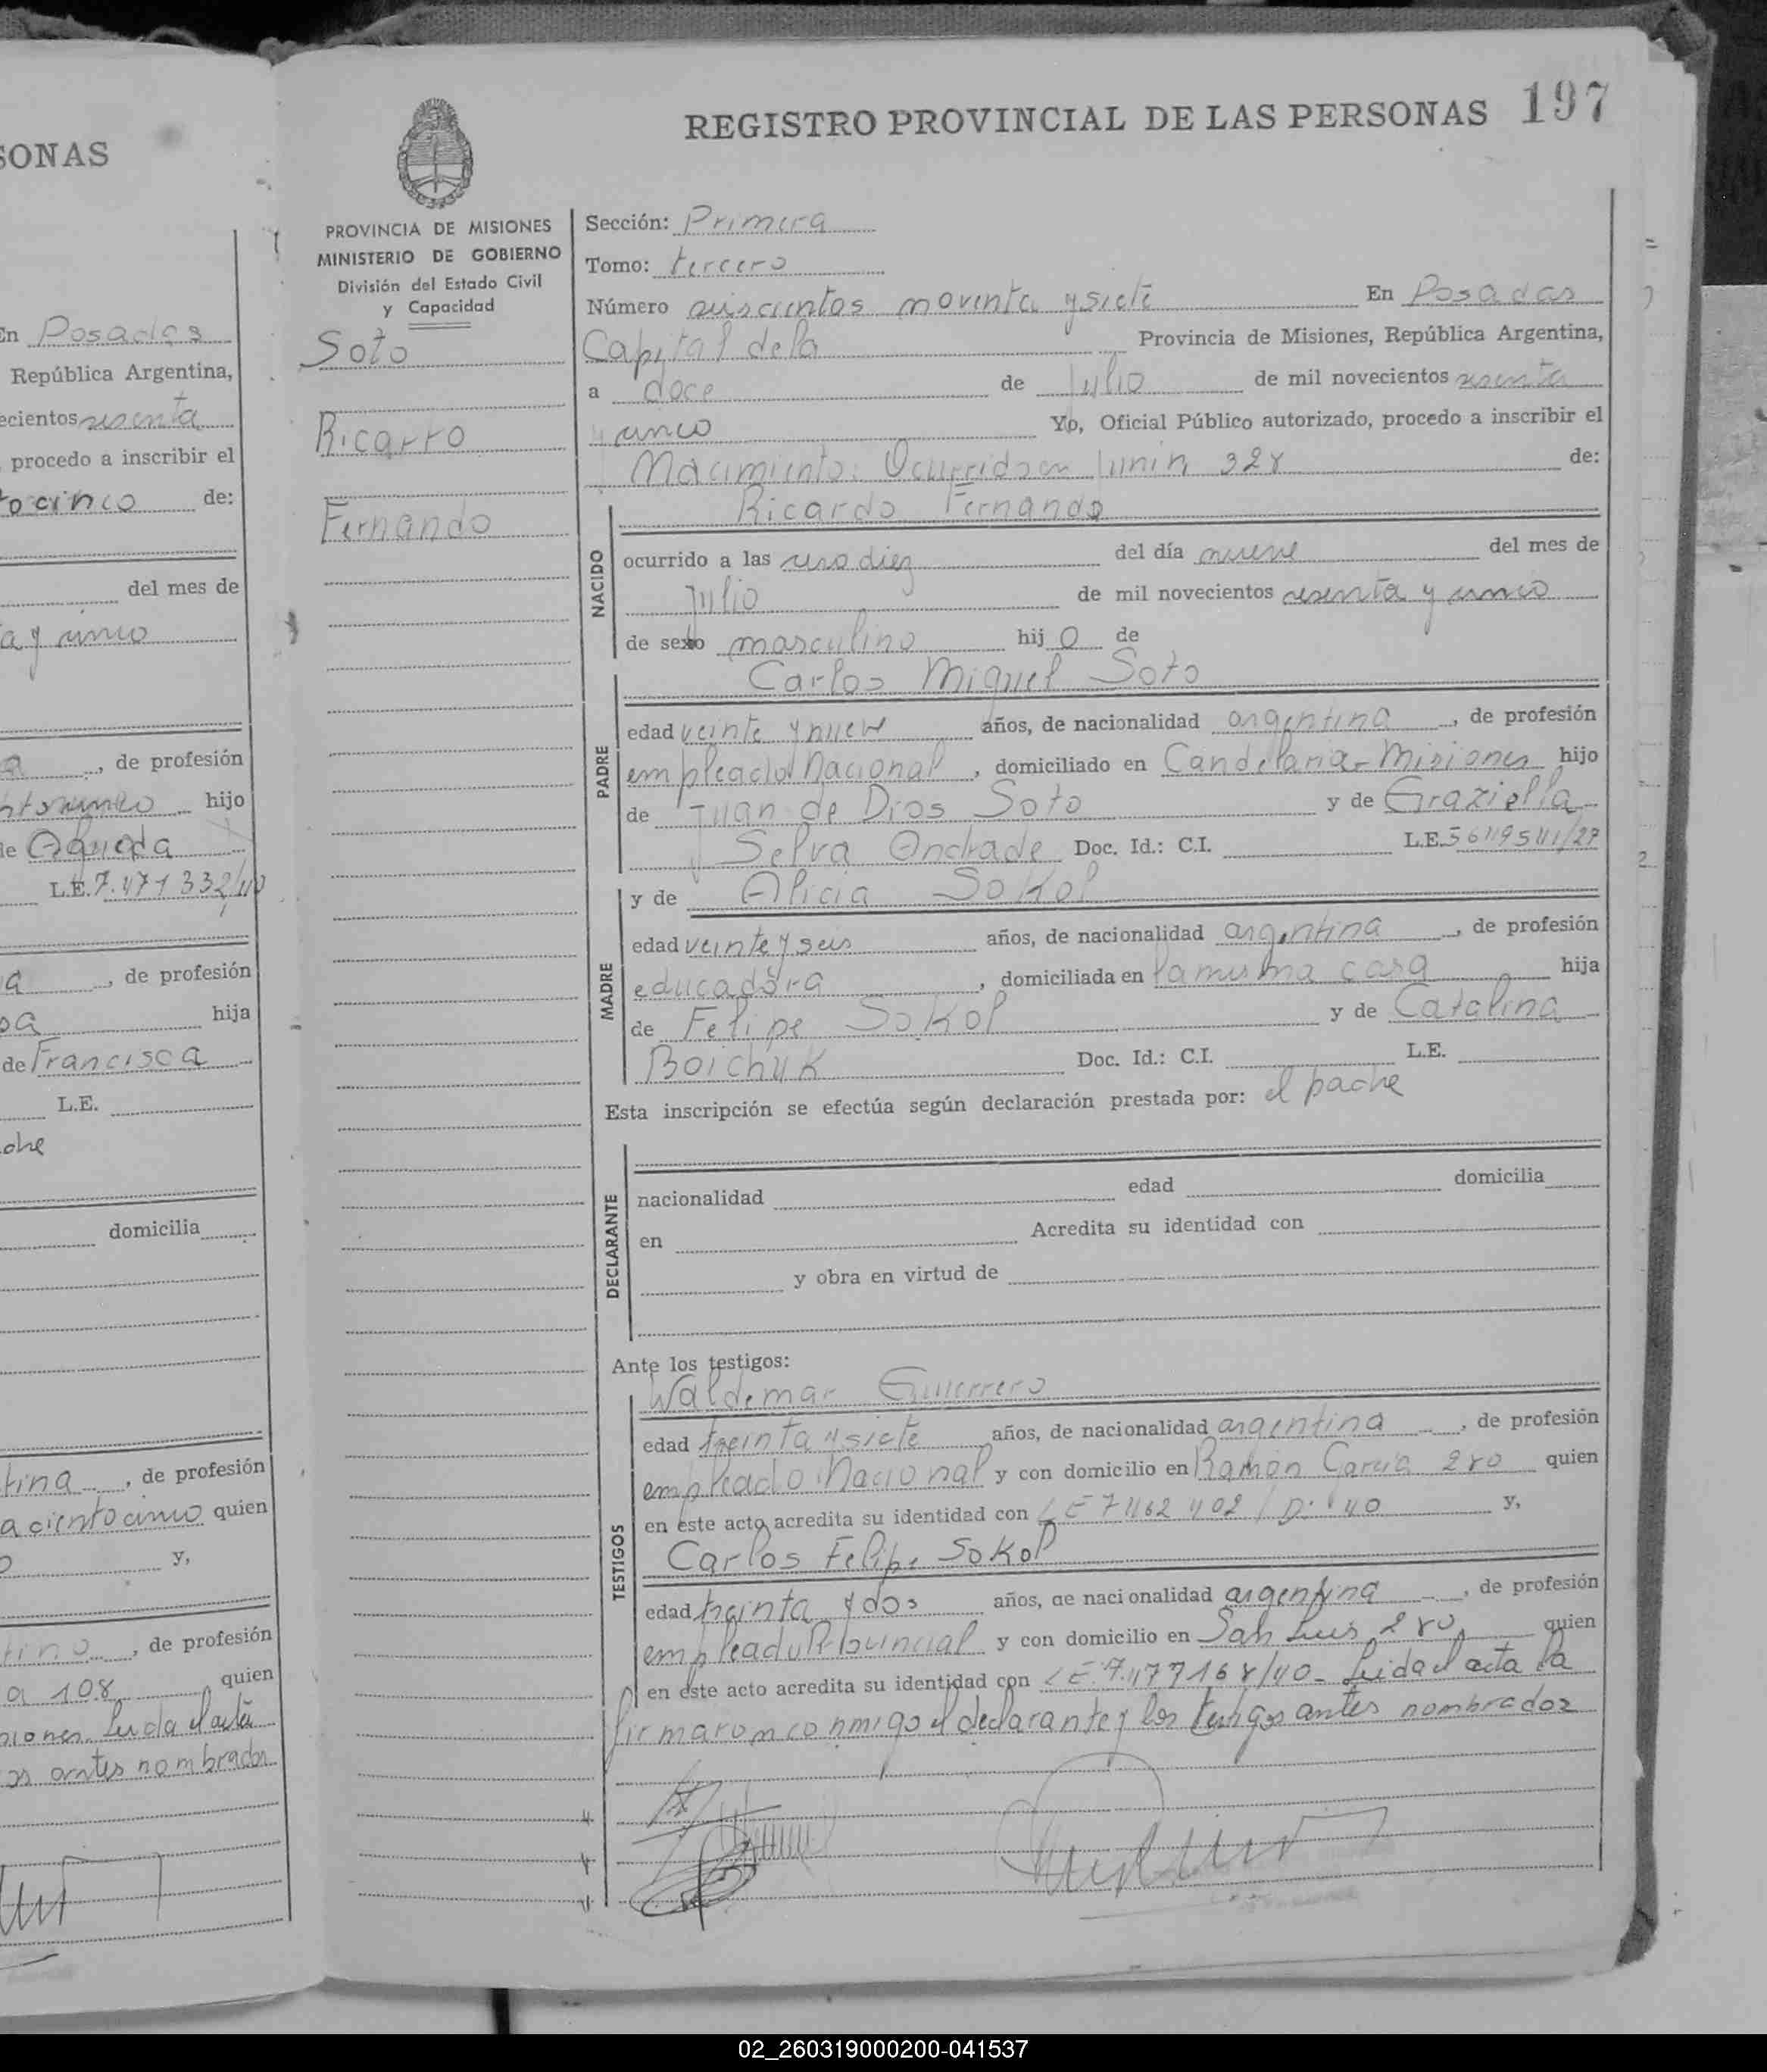 SONAS
En Posadas
República Argentina,
ecientos sesenta
procedo a inscribir el
to cinco de:
del mes de
a y cinco
a, de profesión
hijo
de Agueda
L.E. 7.471.332/40
a, de profesión
sa hija
de Francisca
L.E.
dre
domicilia
tina, de profesión
a ciento cinco quien
o y,
tino, de profesión
a 108 quien
siones. Leida el acta
os antes nombrados
REGISTRO PROVINCIAL DE LAS PERSONAS 197
PROVINCIA DE MISIONES
MINISTERIO DE GOBIERNO
División del Estado Civil
y Capacidad
Soto
Ricarro
Fernando
Sección: Primera
Tomo: tercero
Número seiscientos noventa y siete En Posadas
Capital de la Provincia de Misiones, República Argentina,
a doce de Julio de mil novecientos sesenta
y cinco Yo, Oficial Público autorizado, procedo a inscribir el
Nacimiento: Ocurrido en Junin 328 de:
Ricardo Fernando
NACIDO
ocurrido a las una diez del día nueve del mes de
Julio de mil novecientos sesenta y cinco
de sexo masculino hijo de
Carlos Miguel Soto
PADRE
edad veinte y nueve años, de nacionalidad argentina, de profesión
empleado Nacional, domiciliado en Candelaria - Misiones hijo
de Juan de Dios Soto y de Graziella
Selva Andrade Doc. Id.: C.I. L.E.
y de Alicia Sokol
MADRE
edad veinte y seis años, de nacionalidad argentina, de profesión
educadora, domiciliada en la misma casa hija
de Felipe Sokol y de Catalina
Boichuk Doc. Id.: C.I. L.E.
Esta inscripción se efectúa según declaración prestada por: el padre
DECLARANTE
nacionalidad edad domicilia
en Acredita su identidad con
y obra en virtud de
Ante los testigos:
Waldemar Guerrero
TESTIGOS
edad treinta y siete años, de nacionalidad argentina, de profesión
empleado Nacional y con domicilio en Ramón García 280 quien
en este acto acredita su identidad con LE 7462402/D: 40 y,
Carlos Felipe Sokol
edad treinta y dos años, de nacionalidad argentina, de profesión
empleado Provincial y con domicilio en San Luis 280, quien
en este acto acredita su identidad con LE. 7.477168/40 - Leida el acta la
firmaron conmigo el declarante y los testigos antes nombrados
02_260319000200-041537